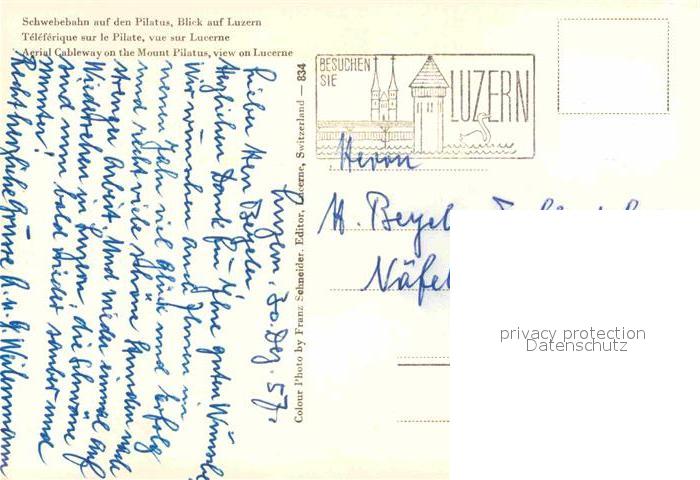 Schwebebahn auf den Pilatus, Blick auf Luzern
Téléférique sur le Pilate, vue sur Lucerne
Aerial Cableway on the Mount Pilatus, view on Lucerne
BESUCHEN
SIE
LUZERN
Colour Photo by Franz Schneider, Editor, Lucerne, Switzerland — 834
Luzern, 30. Dez. 57.
Lieber Herr Beyeler
Herzlichen Dank für Ihre guten Wünsche
Wir wünschen auch Ihnen im
neuen Jahr viel Glück und Erfolg
und recht viele schöne Stunden nach
strenger Arbeit. Und wieder einmal auf
Wiedersehen in Luzern, die Schwäne
sind nun bald wieder sauber und
munter!
Recht herzliche Grüsse
Herrn
H. Beyel
Näfel
privacy protection
Datenschutz